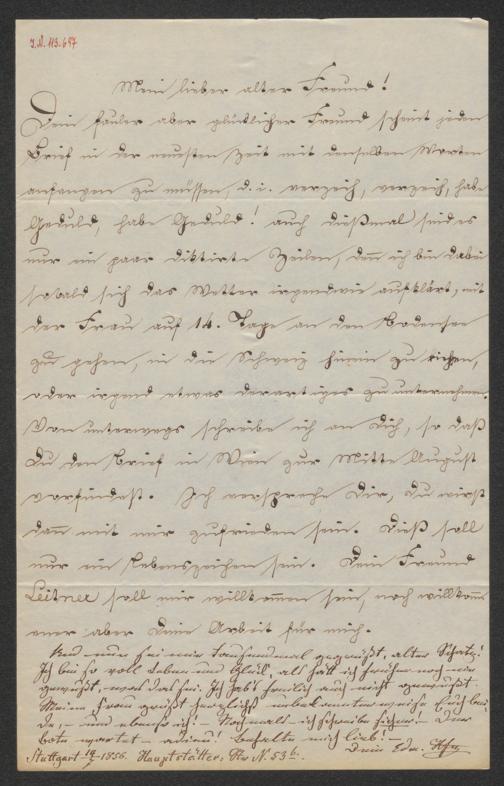 I.N. 113.697
Mein lieber alter Freund!
Dein fauler aber glücklicher Freund scheint jeden
Brief in der neuesten Zeit mit denselben Worten
anfangen zu müssen, d. i. verzeih, verzeih, habe
Geduld, habe Geduld! auch dießmal sind es
nur ein paar diktirte Zeilen, denn ich bin dabei
sobald sich das Wetter irgendwie aufklärt, mit
der Frau auf 14. Tage an den Bodensee
zu gehen, in die Schweiz hinein zu
oder irgend etwas derartiges zu unternehmen.
Von unterwegs schreibe ich an Dich, so daß
Du den Brief in Wien zur Mitte August
vorfindest. Ich verspreche Dir, du wirst
dann mit mir zufrieden sein. Dieß soll
nur ein Lebenszeichen sein. Dein Freund
Leitner soll mir willkommen sein, noch willkomm
ener aber Deine Arbeit für mich.
Und nun sei mir tausendmal gegrüßt, alter Schatz!
Ich bin so voll Leben und Glück, als hätt ich früher noch nie
gewußt, was das sei. Ich hab's freilich auch nicht gewußt.
Meine Frau grüßt herzlichst unbekannterweise Euch bei
de, – und ebenso ich! – Nochmals – ich schreibe sicher. – Der
Bote wartet – adieu! Behalte mich lieb! –
Dein Edm.
Stuttgart 1856. Hauptstätter: Str N. 53 b.